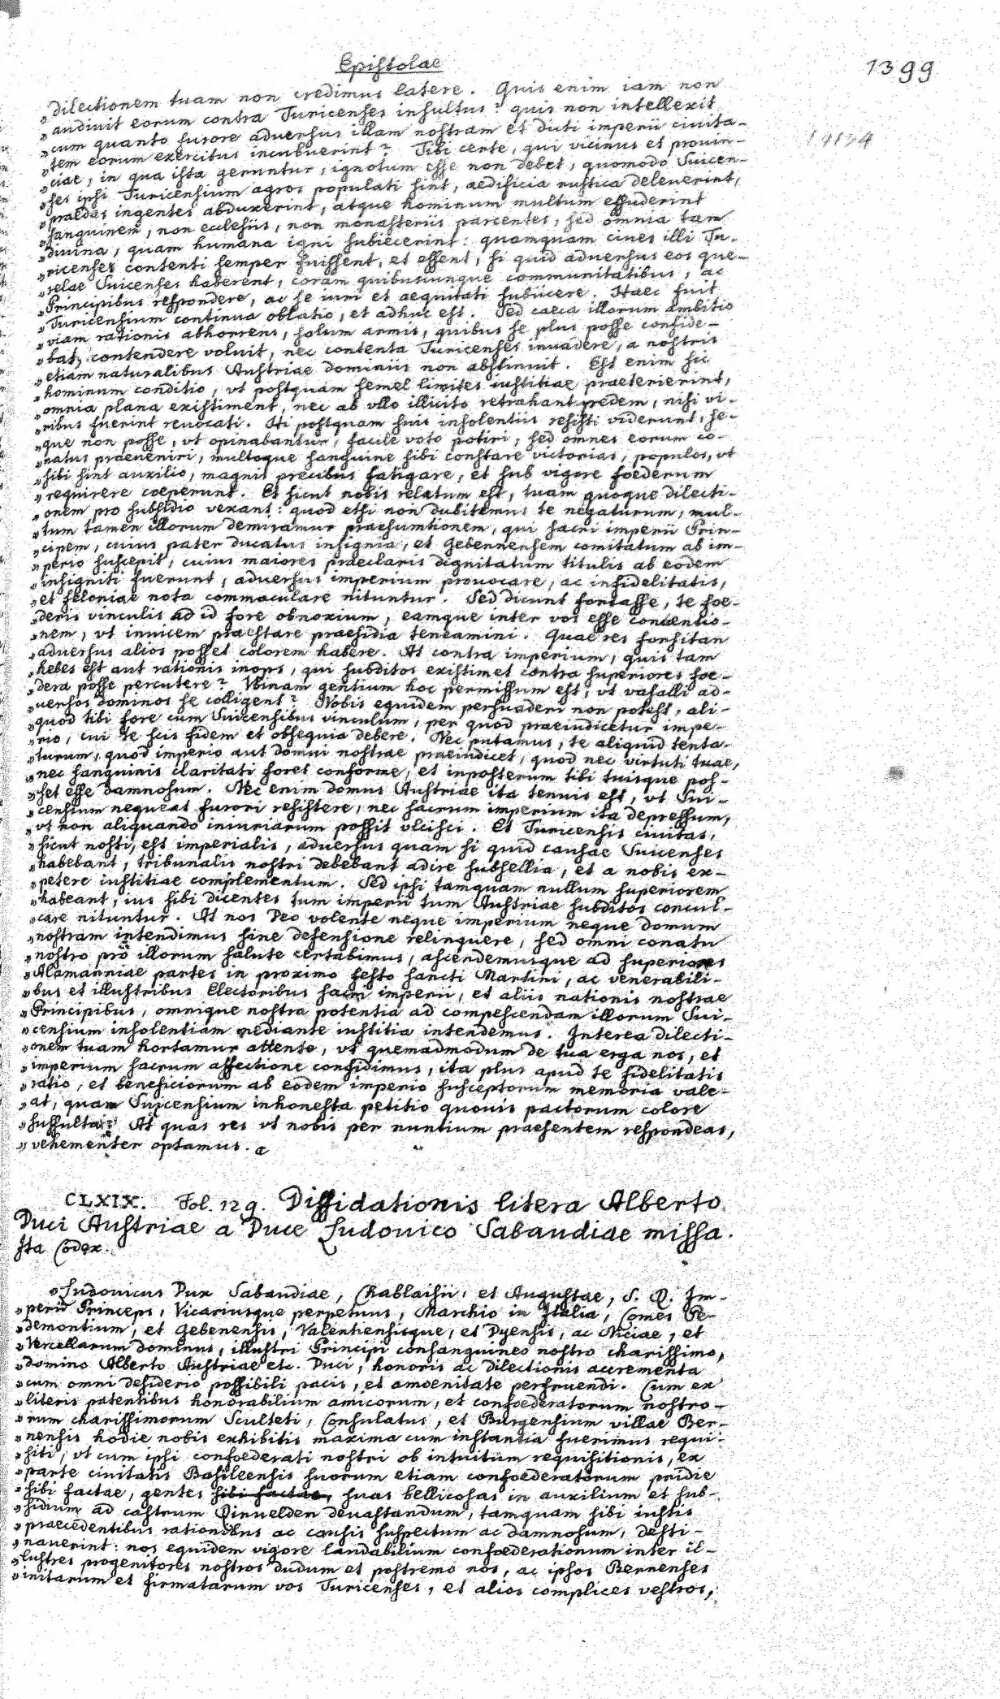 Epistolae
1399
19134
„dilectionem tuam non credimus latere. Quis enim iam non
„audivit eorum contra Turicenses insultus? quis non intellexit,
„cum quanto furore adversus illam nostram et dicti imperii civita-
„tem eorum exercitus incubuerint? Tibi certe, qui vicinus et provin-
„ciae, in qua ista geruntur, ignotum esse non debet, quomodo Suicen-
„ses ipsi Turicensium agros populati sint, aedificia rustica deleverint,
„praedas ingentes abduxerint, atque hominum multum effuderint
„sanguinem, non ecclesiis, non monasteriis parcentes, sed omnia tam
„divina, quam humana igni subiecerint: quamquam cives illi Tu-
„ricenses contenti semper fuissent, et essent, si quid adversus eos que-
„relae Suicenses haberent, coram quibuscunque communitatibus, ac
„Principibus respondere, ac se iuri et aequitati subiicere. Haec fuit
„Turicensium continua oblatio, et adhuc est. Sed caeca illorum ambitio
„viam rationis abhorrens, solum armis, quibus se plus posse confide-
„bat, contendere voluit, nec contenta Turicenses invadere, a nostris
„etiam naturalibus Austriae dominiis non abstinuit. Est enim sic
„hominum conditio, vt postquam semel limites iustitiae praeterierint,
„omnia plana existiment, nec ab vllo illicito retrahant pedem, nisi vi-
„ribus fuerint revocati. Hi postquam suis insolentiis resisti viderunt, se-
„que non posse, vt opinabantur, facile voto potiri, sed omnes eorum co-
„natus praeveniri, multoque sanguine sibi constare victorias, populos, vt
„sibi sint auxilio, magnis precibus fatigare, et sub vigore foederum
„requirere coeperunt. Et sicut nobis relatum est, tuam quoque dilecti-
„onem pro subsidio vexant: quod etsi non dubitemus te negaturum, mul-
„tum tamen illorum demiramur praesumtionem, qui sacri imperii Prin-
„cipem, cuius pater ducatus insignia, et Gebennensem comitatum ab im-
„perio suscepit, cuius maiores praeclaris dignitatum titulis ab eodem
„insigniti fuerunt, adversus imperium provocare, ac infidelitatis,
„et feloniae nota commaculare nituntur. Sed dicunt fortasse, te foe-
„deris vinculis ad id fore obnoxium, eamque inter vos esse conventio-
„nem, vt invicem praestare praesidia teneamini. Quae res forsitan
„adversus alios posset colorem habere. At contra imperium, quis tam
„hebes est aut rationis inops, qui subditos existimet contra superiores foe-
„dera posse percutere? Vbinam gentium hoc permissum est, vt vasalli ad-
„versos dominos se colligent? Nobis equidem persuaderi non potest, ali-
„quod tibi fore cum Suicensibus vinculum, per quod praeiudicetur impe-
„rio, cui te scis fidem et obsequia debere. Nec putamus, te aliquid tenta-
„turum, quod imperio aut domui nostrae praeiudicet, quod nec virtuti tuae,
„nec sanguinis claritati foret conforme, et inposterum tibi tuisque pos-
„set esse damnosum. Nec enim domus Austriae ita tenuis est, vt Sui-
„censium nequeat furori resistere, nec sacrum imperium ita depressum,
„vt non aliquando iniuriarum possit vlcisci. Et Turicensis civitas,
„sicut nosti, est imperialis, adversus quam si quid causae Suicenses
„habebant, tribunalis nostri debebant adire subsellia, et a nobis ex-
„petere iustitiae complementum. Sed ipsi tamquam nullum superiorem
„habeant, ius sibi dicentes tum imperii tum Austriae subditos concul-
„care nituntur. At nos Deo volente neque imperium neque domum
„nostram intendimus sine defensione relinquere, sed omni conatu
„nostro pro illorum salute certabimus, ascendemusque ad superiores
„Alamanniae partes in proximo festo sancti Martini, ac venerabili-
„bus et illustribus Electoribus sacri imperii, et aliis nationis nostrae
„Principibus, omnique nostra potentia ad compescendam illorum Sui-
„censium insolentiam mediante iustitia intendemus. Interea dilecti-
„onem tuam hortamur attente, vt quemadmodum de tua erga nos, et
„imperium sacrum affectione confidimus, ita plus apud te fidelitatis
„ratio, et beneficiorum ab eodem imperio susceptorum memoria vale-
„at, quam Suicensium inhonesta petitio quovis pactorum colore
„suffulta: At quas res vt nobis per nuntium praesentem respondeas,
„vehementer optamus.
CLXIX. Fol. 129. Diffidationis litera Alberto
Duci Austriae a Duce Ludovico Sabaudiae missa.
Ita Codex.
„Ludovicus Dux Sabaudiae, Chablaisii, et Augustae, S. R. Im-
„perii Princeps, Vicariusque perpetuus, Marchio in Italia, Comes Pe-
„demontium, et Gebenensis, Valentiensisque, et Dyensis, ac Niciae, et
„Vercellarum dominus, illustri Principi consanguineo nostro charissimo,
„domino Alberto Austriae etc. Duci, honoris ac dilectionis accrementa
„cum omni desiderio possibili pacis, et amoenitate perfruendi. Cum ex
„literis patentibus honorabilium amicorum, et confoederatorum nostro-
„rum charissimorum Sculteti, Consulatus, et Burgensium villae Ber-
„nensis hodie nobis exhibitis maxima cum instantia fuerimus requi-
„siti, vt cum ipsi confoederati nostri ob intuitum requisitionis, ex
„parte civitatis Basileensis suorum etiam confoederatorum pridie
„sibi factae, gentes sibi factae, suas bellicosas in auxilium et sub-
„sidium ad castrum Rinvelden devastandum, tamquam sibi iustis
„praecedentibus rationibus ac causis suspectum ac damnosum, desti-
„naverint: nos equidem vigore laudabilium confoederationum inter il-
„lustres progenitores nostros dudum et postremo nos, ac ipsos Bernenses
„initarum et firmatarum vos Turicenses, et alios complices vestros,